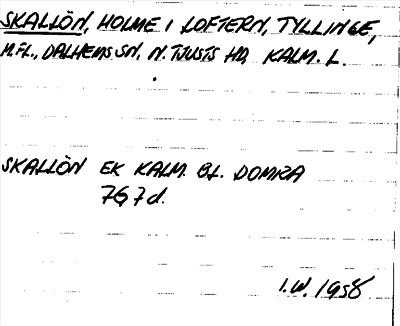 SKALLÖN, HOLME I LOFTERN, TYLLINGE,
M.FL., DALHEMS SN. N. TJUSTS HD, KALM. L.
SKALLÖN EK KALM. BL. DOMRA
7G7d.
I.W. 1958